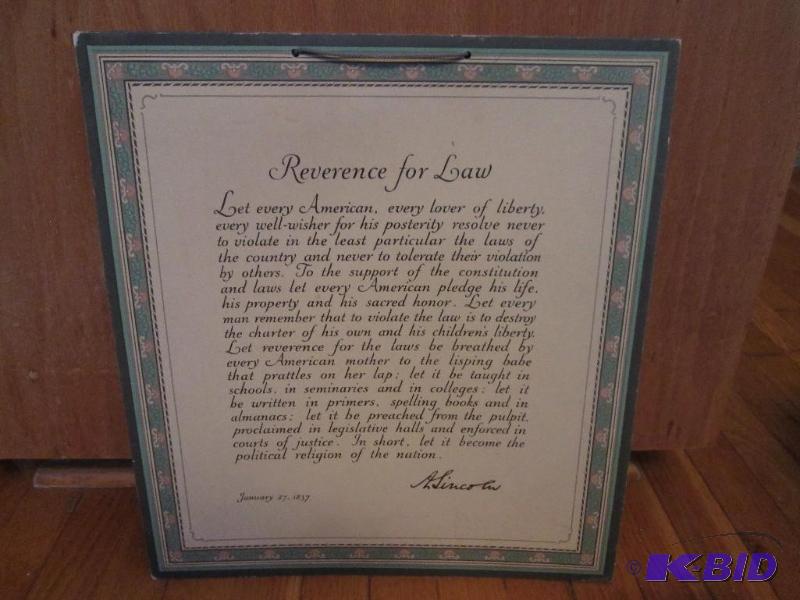 Reverence for Law
Let every American, every lover of liberty,
every well-wisher for his posterity resolve never
to violate in the least particular the laws of
the country and never to tolerate their violation
by others. To the support of the constitution
and laws let every American pledge his life,
his property and his sacred honor. Let every
man remember that to violate the law is to destroy
the charter of his own and his children's liberty.
Let reverence for the laws be breathed by
every American mother to the lisping babe
that prattles on her lap; let it be taught in
schools, in seminaries and in colleges; let it
be written in primers, spelling books and in
almanacs; let it be preached from the pulpit,
proclaimed in legislative halls and enforced in
courts of justice. In short, let it become the
political religion of the nation.
A. Lincoln
January 27, 1837
© K-BID